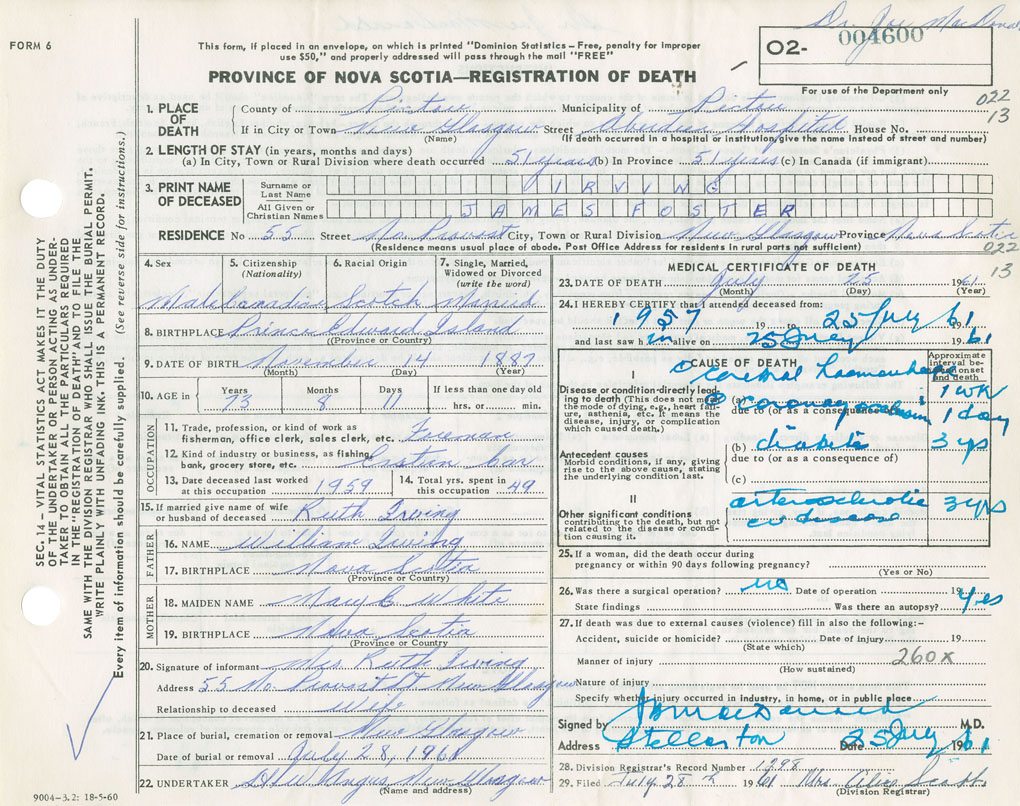 Dr. Joe MacDonald
FORM 6
This form, if placed in an envelope, on which is printed "Dominion Statistics – Free, penalty for improper
use $50," and properly addressed will pass through the mail "FREE"
O2- 004600
PROVINCE OF NOVA SCOTIA—REGISTRATION OF DEATH
For use of the Department only
022
13
1. PLACE OF DEATH
County of Pictou Municipality of Pictou
If in City or Town New Glasgow Street Aberdeen Hospital House No.
(Name) (If death occurred in a hospital or institution, give name instead of street and number)
2. LENGTH OF STAY (in years, months and days)
(a) In City, Town or Rural Division where death occurred 51 years (b) In Province 51 years (c) In Canada (if immigrant)
3. PRINT NAME OF DECEASED
Surname or Last Name IRVING
All Given or Christian Names JAMES FOSTER
RESIDENCE No 55 Street No Provost City, Town or Rural Division New Glasgow Province Nova Scotia
(Residence means usual place of abode. Post Office Address for residents in rural parts not sufficient)
022
13
4. Sex
Male
5. Citizenship (Nationality)
Canadian
6. Racial Origin
Scotch
7. Single, Married, Widowed or Divorced (write the word)
Married
8. BIRTHPLACE Prince Edward Island
(Province or Country)
9. DATE OF BIRTH November 14 1887
(Month) (Day) (Year)
10. AGE in Years 73 Months 8 Days 11 If less than one day old
hrs. or min.
OCCUPATION
11. Trade, profession, or kind of work as
fisherman, office clerk, sales clerk, etc. Foreman
12. Kind of industry or business, as fishing,
bank, grocery store, etc. Eastern Car
13. Date deceased last worked
at this occupation 1959
14. Total yrs. spent in
this occupation 49
15. If married give name of wife
or husband of deceased Ruth Irving
FATHER
16. NAME William Irving
17. BIRTHPLACE Nova Scotia
(Province or Country)
MOTHER
18. MAIDEN NAME Mary C White
19. BIRTHPLACE Nova Scotia
(Province or Country)
20. Signature of informant Mrs Ruth Irving
Address 55 No. Provost St New Glasgow
Relationship to deceased Wife
21. Place of burial, cremation or removal New Glasgow
Date of burial or removal July 28, 1961
22. UNDERTAKER Angus New Glasgow
(Name and address)
9004–3.2: 18-5-60
MEDICAL CERTIFICATE OF DEATH
23. DATE OF DEATH July 25 1961
(Month) (Day) (Year)
24. I HEREBY CERTIFY that I attended deceased from:
1957 19 to 25 July 61 19
and last saw him alive on 25 July 1961
CAUSE OF DEATH
Approximate interval between onset and death
I
Disease or condition directly leading to death (This does not mean the mode of dying, e.g., heart failure, asthenia, etc. It means the disease, injury, or complication which caused death.)
(a) Cerebral haemorrhage 1 wk
due to (or as a consequence of)
coronary occlusion 1 day
(b) diabetes 3 yrs
Antecedent causes
Morbid conditions, if any, giving rise to the above cause, stating the underlying condition last.
due to (or as a consequence of)
(c)
II
Other significant conditions
contributing to the death, but not related to the disease or condition causing it.
arteriosclerotic 3 yrs
cv disease
25. If a woman, did the death occur during
pregnancy or within 90 days following pregnancy?
(Yes or No)
26. Was there a surgical operation? no Date of operation 19
State findings Was there an autopsy? yes
27. If death was due to external causes (violence) fill in also the following:–
Accident, suicide or homicide? Date of injury 19
(State which)
Manner of injury 260X
(How sustained)
Nature of injury
Specify whether injury occurred in industry, in home, or in public place
Signed by MacDonald M.D.
Address Stellarton Date 25 July 1961
28. Division Registrar's Record Number 1298
29. Filed July 28th 1961 Mrs. Alice Scott
(Division Registrar)
SEC. 14 – VITAL STATISTICS ACT MAKES IT THE DUTY
OF THE UNDERTAKER OR PERSON ACTING AS UNDER-
TAKER TO OBTAIN ALL THE PARTICULARS REQUIRED
IN THE "REGISTRATION OF DEATH" AND TO FILE THE
SAME WITH THE DIVISION REGISTRAR WHO SHALL ISSUE THE BURIAL PERMIT.
WRITE PLAINLY WITH UNFADING INK. THIS IS A PERMANENT RECORD.
Every item of information should be carefully supplied. (See reverse side for instructions.)